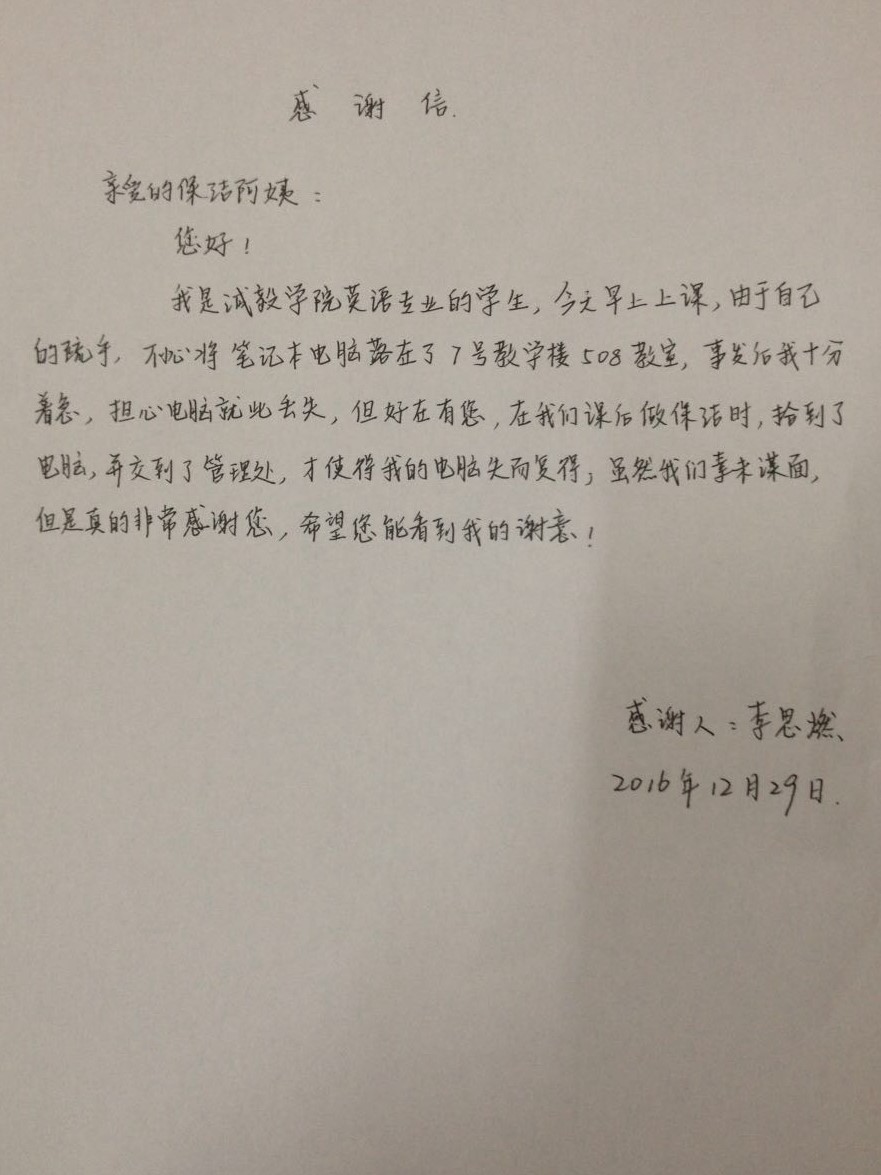 感谢信.
亲爱的保洁阿姨:
您好!
我是诚教学院英语专业的学生,今天早上上课,由于自己
的疏于,不心将笔记本电脑落在了7号教学楼508教室,事发后我十分
着急,担心电脑就此丢失,但好在有您,在我们课后做保洁时,拾到了
电脑,并交到了管理处,才使得我的电脑失而复得,虽然我们素未谋面,
但是真的非常感谢您,希望您能看到我的谢意!
感谢人:李思燃、
2016年12月29日.